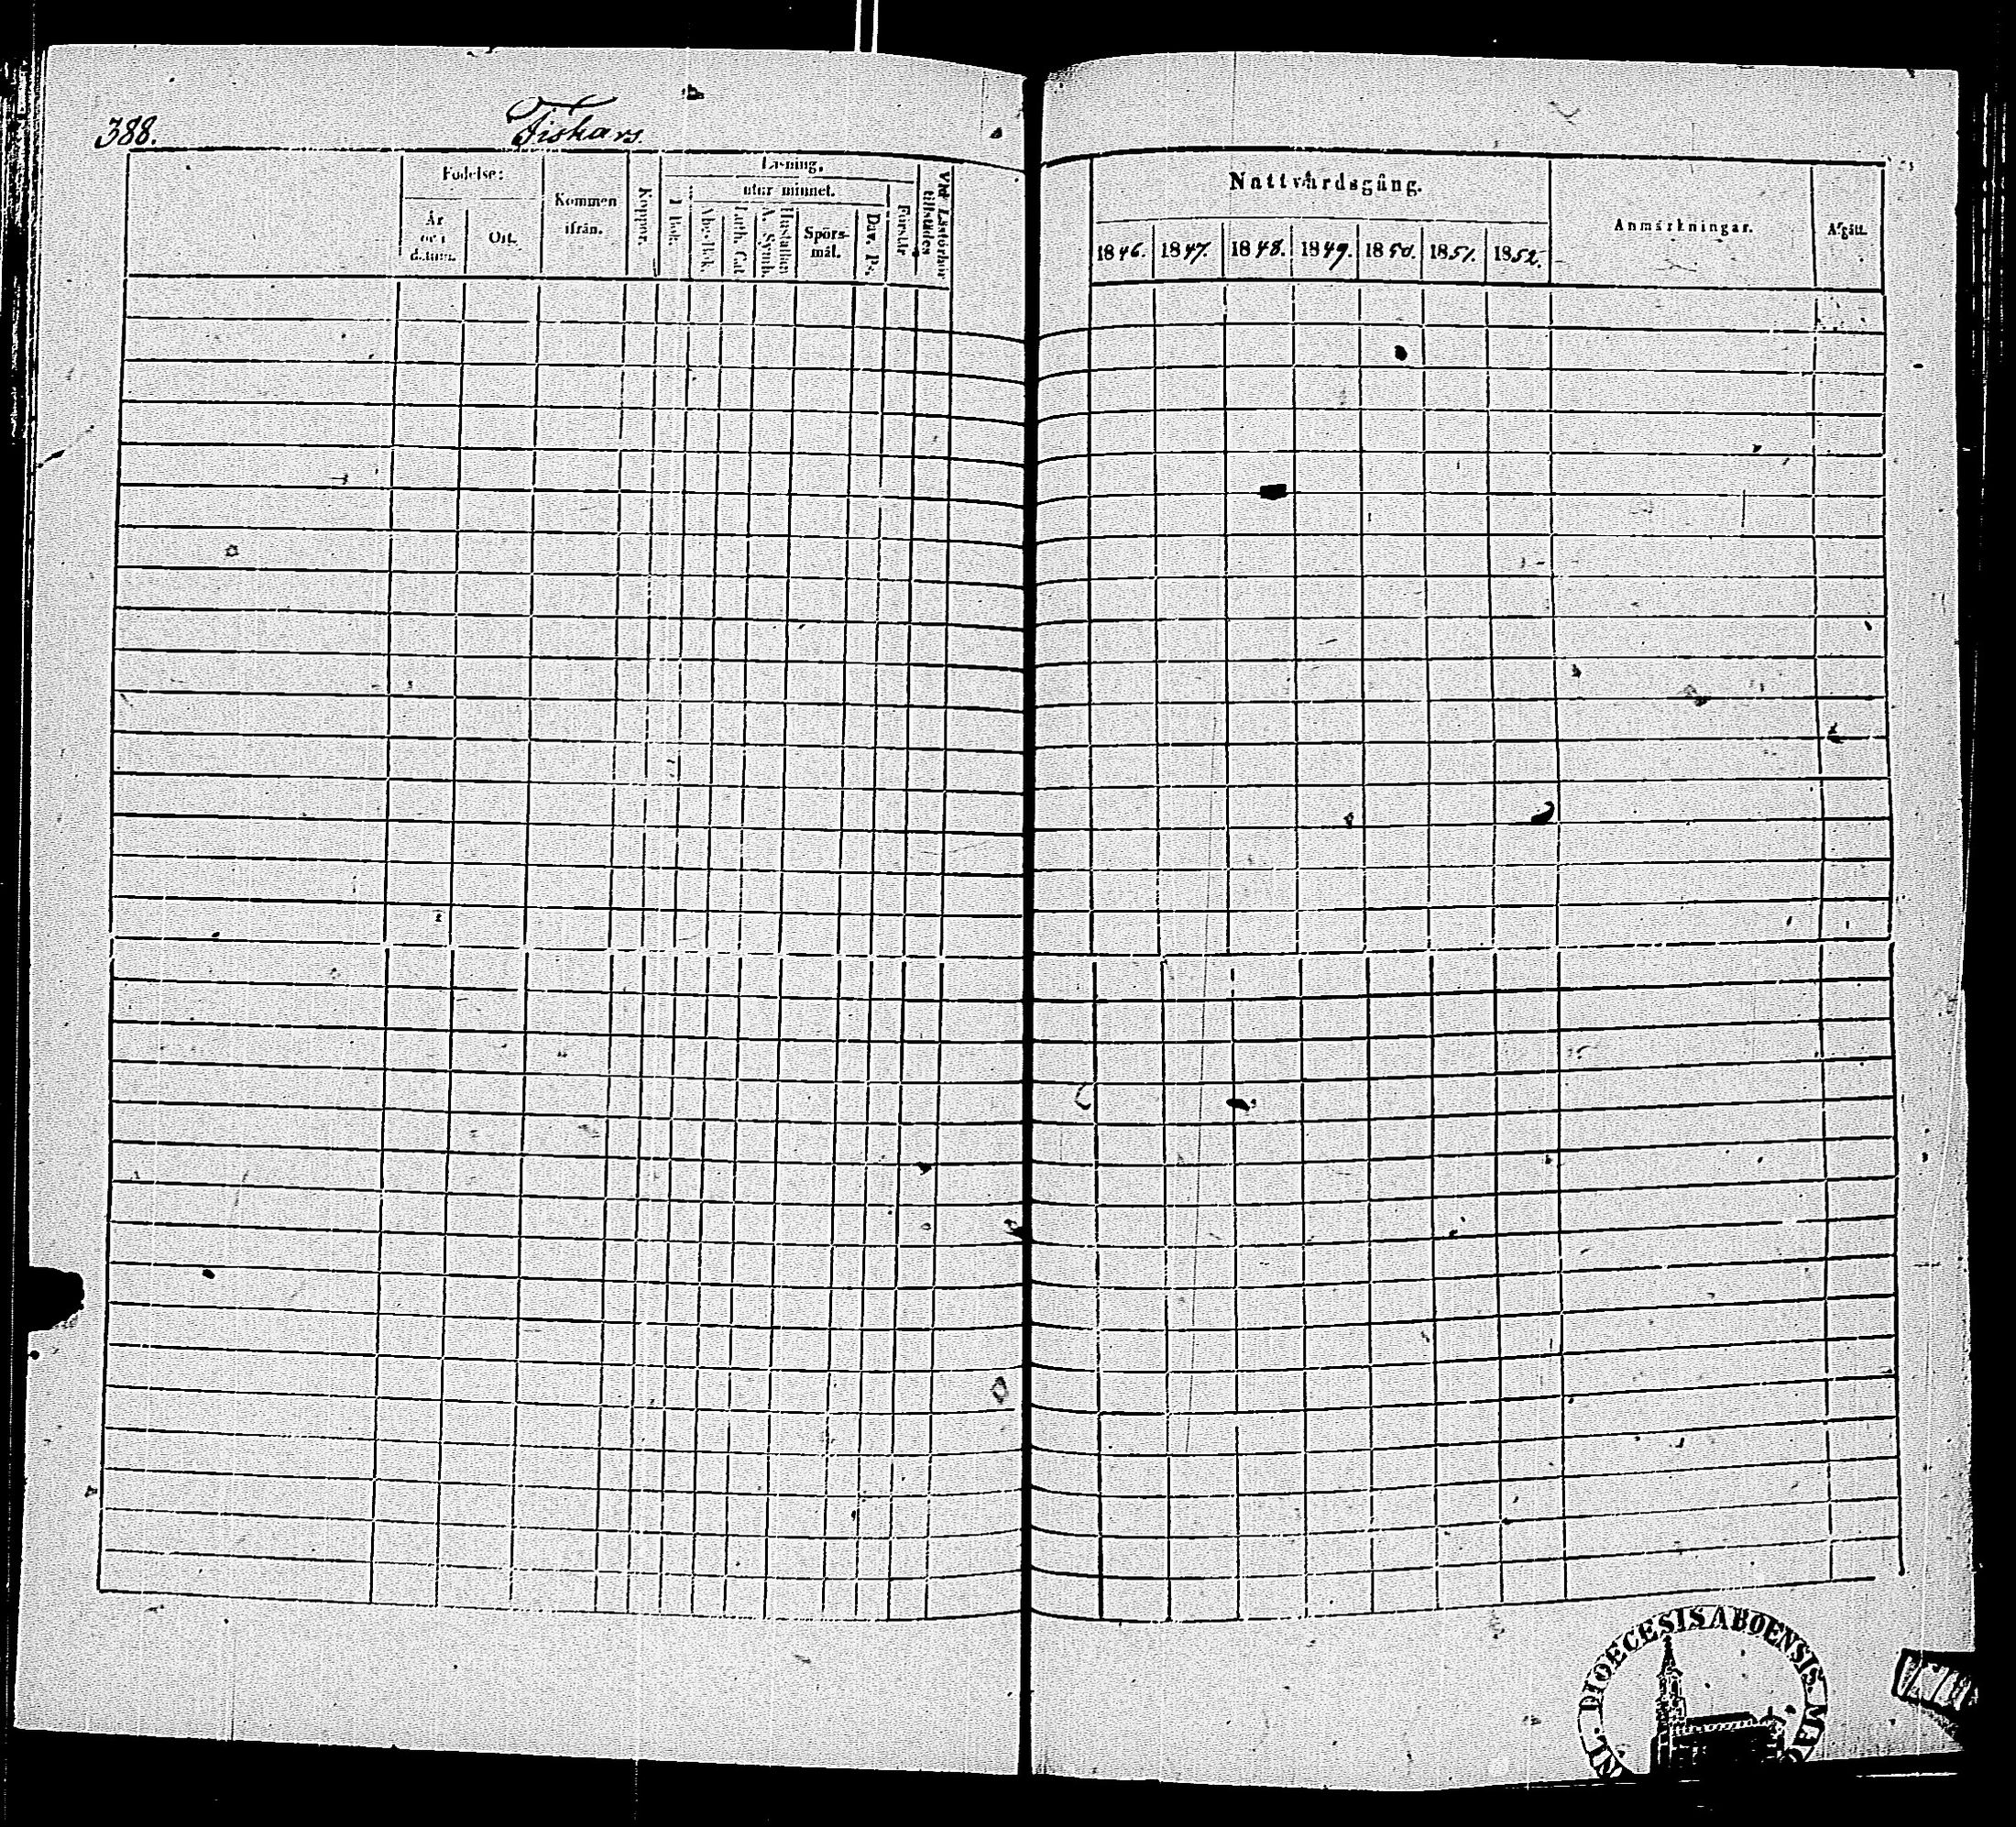 388. Fiskars.
Födelse: Läsning,
Kommen ifrån. Koppor. utur minnet. Vid Läsförhör tillstädes
År och datum. Ort. I bok. Abc-bok. Luth. Cat. Hustaflan A. Symb. Spörs-mål. Dav. Ps. Förstår
Nattvardsgång. Anmärkningar. Afgått.
1846. 1847. 1848. 1849. 1850. 1851. 1852.
DIOECESIS ABOENSIS.